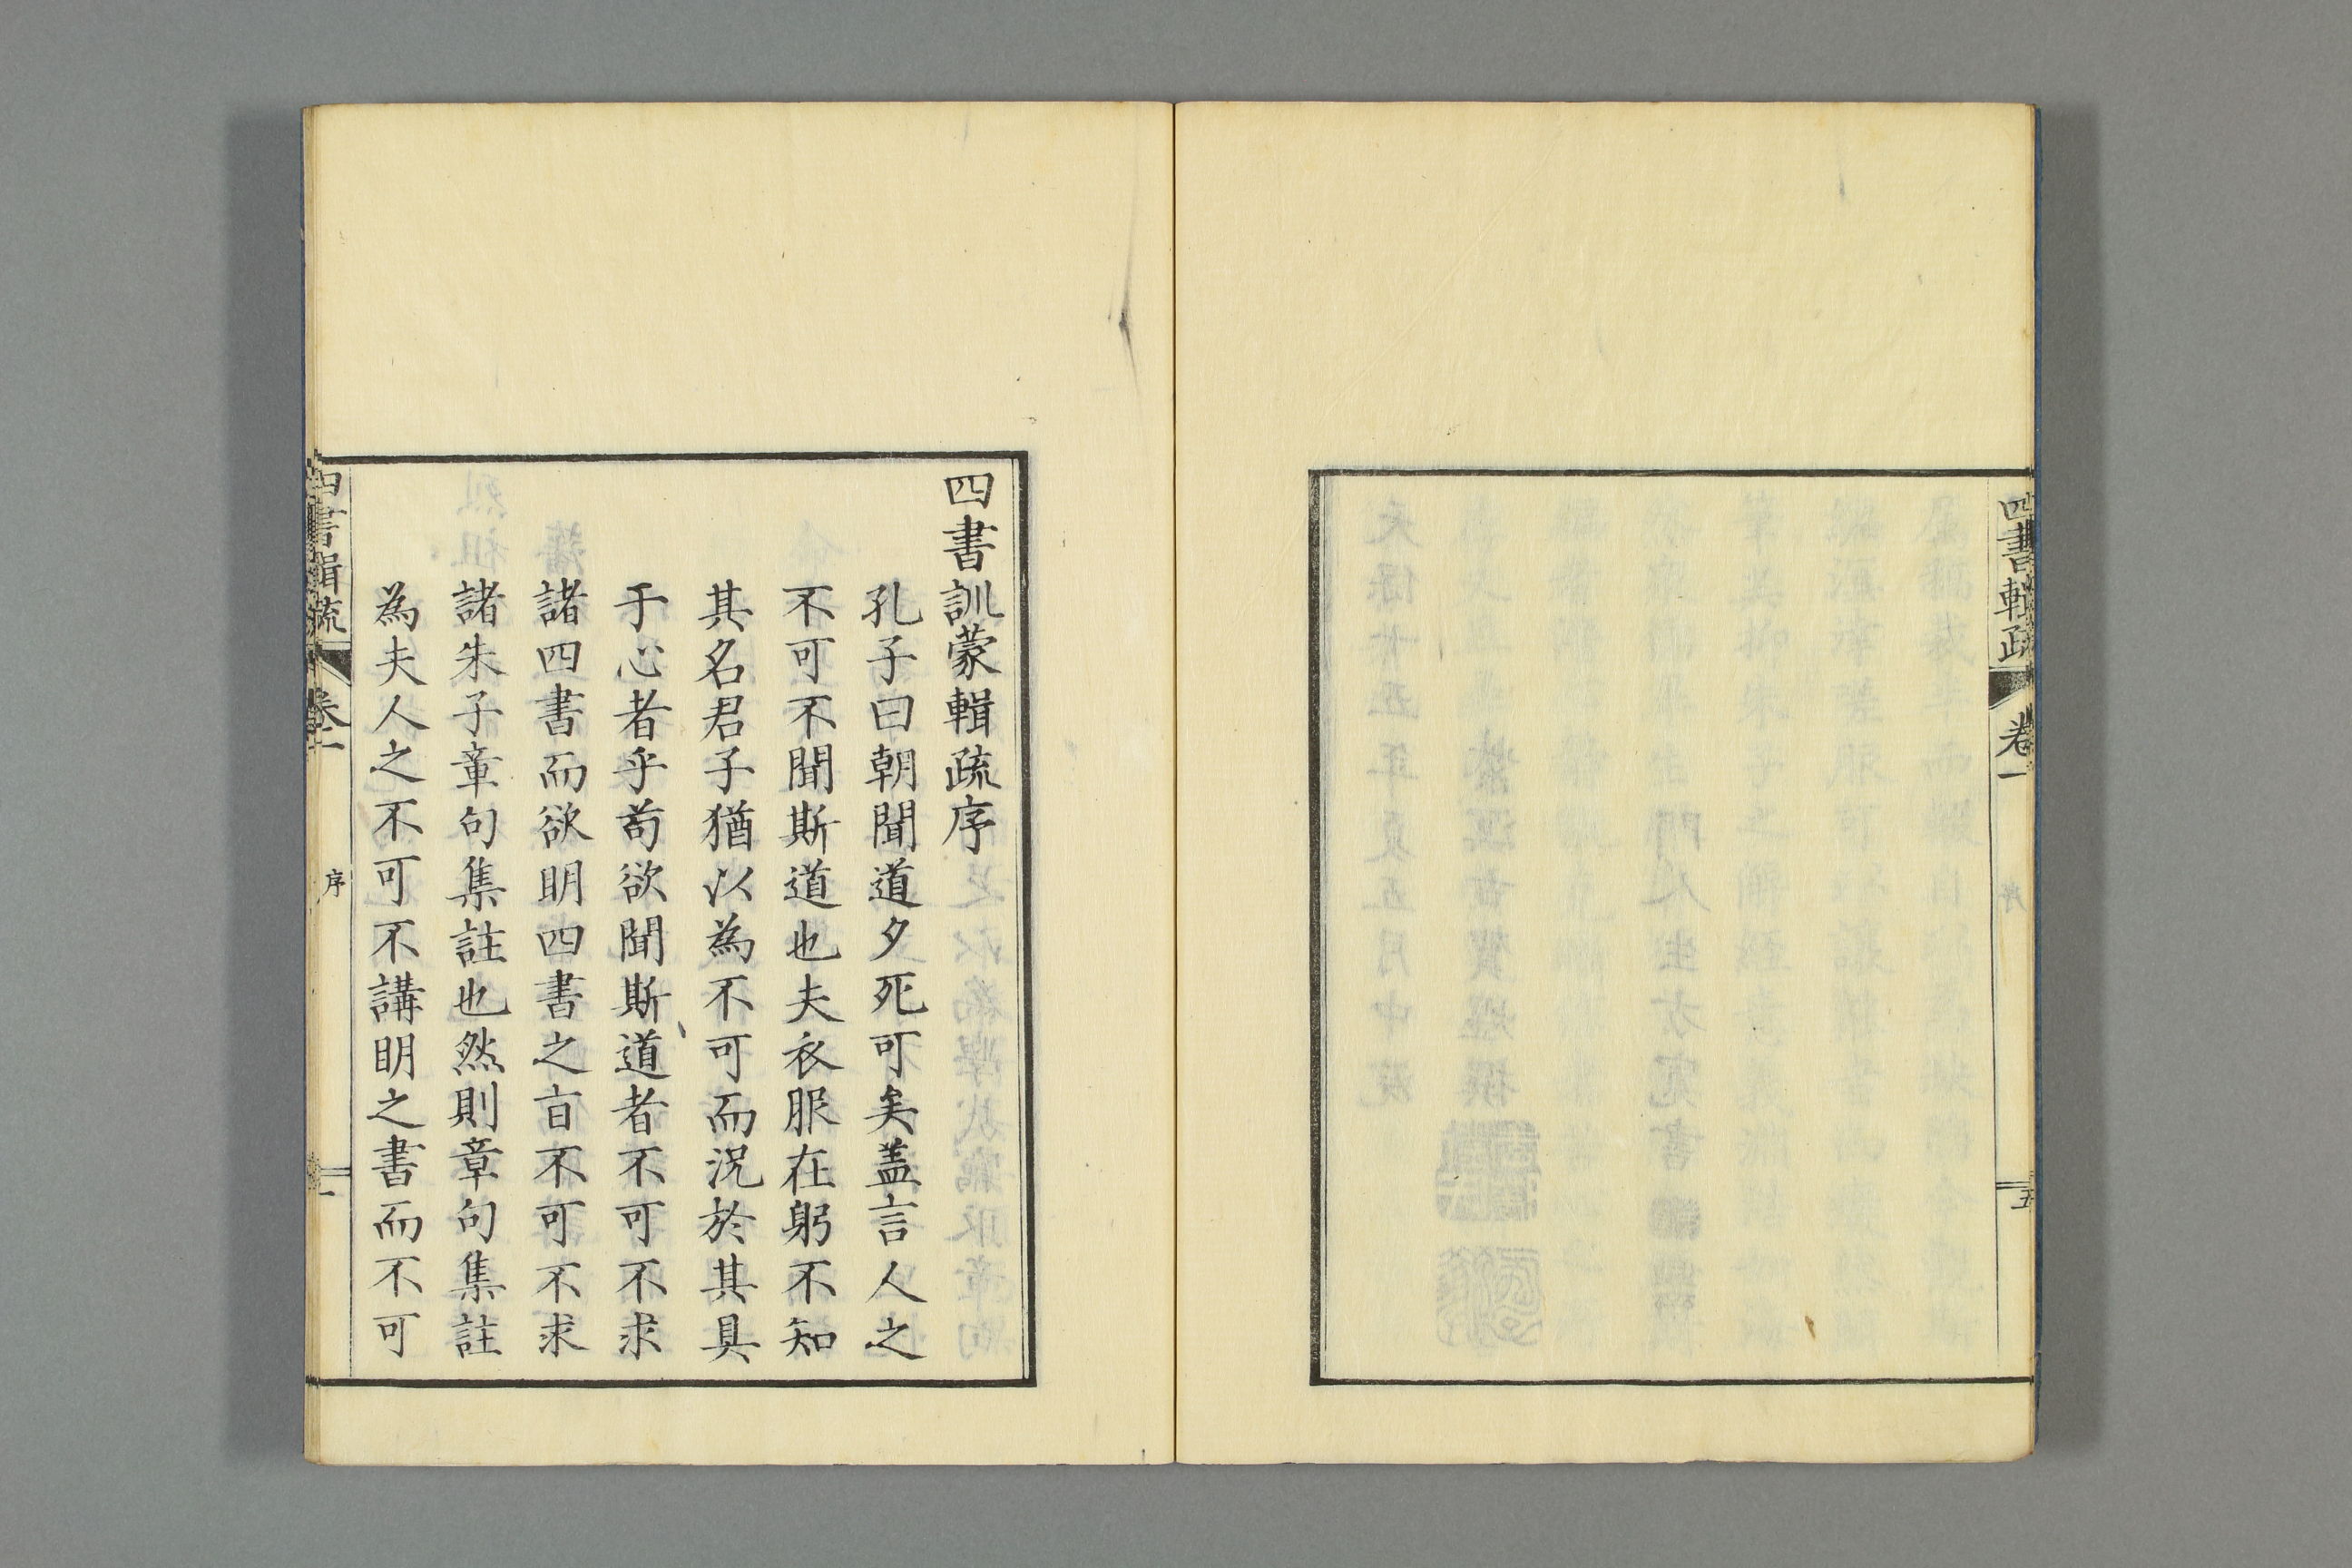 四書輯疏
卷一
五
四書訓蒙輯疏序
孔子曰朝聞道夕死可矣蓋言人之
不可不聞斯道也夫衣服在躬不知
其名君子猶以為不可而況於其具
于心者乎苟欲聞斯道者不可不求
諸四書而欲明四書之旨不可不求
諸朱子章句集註也然則章句集註
為夫人之不可不講明之書而不可
四書輯疏
卷一
序
一